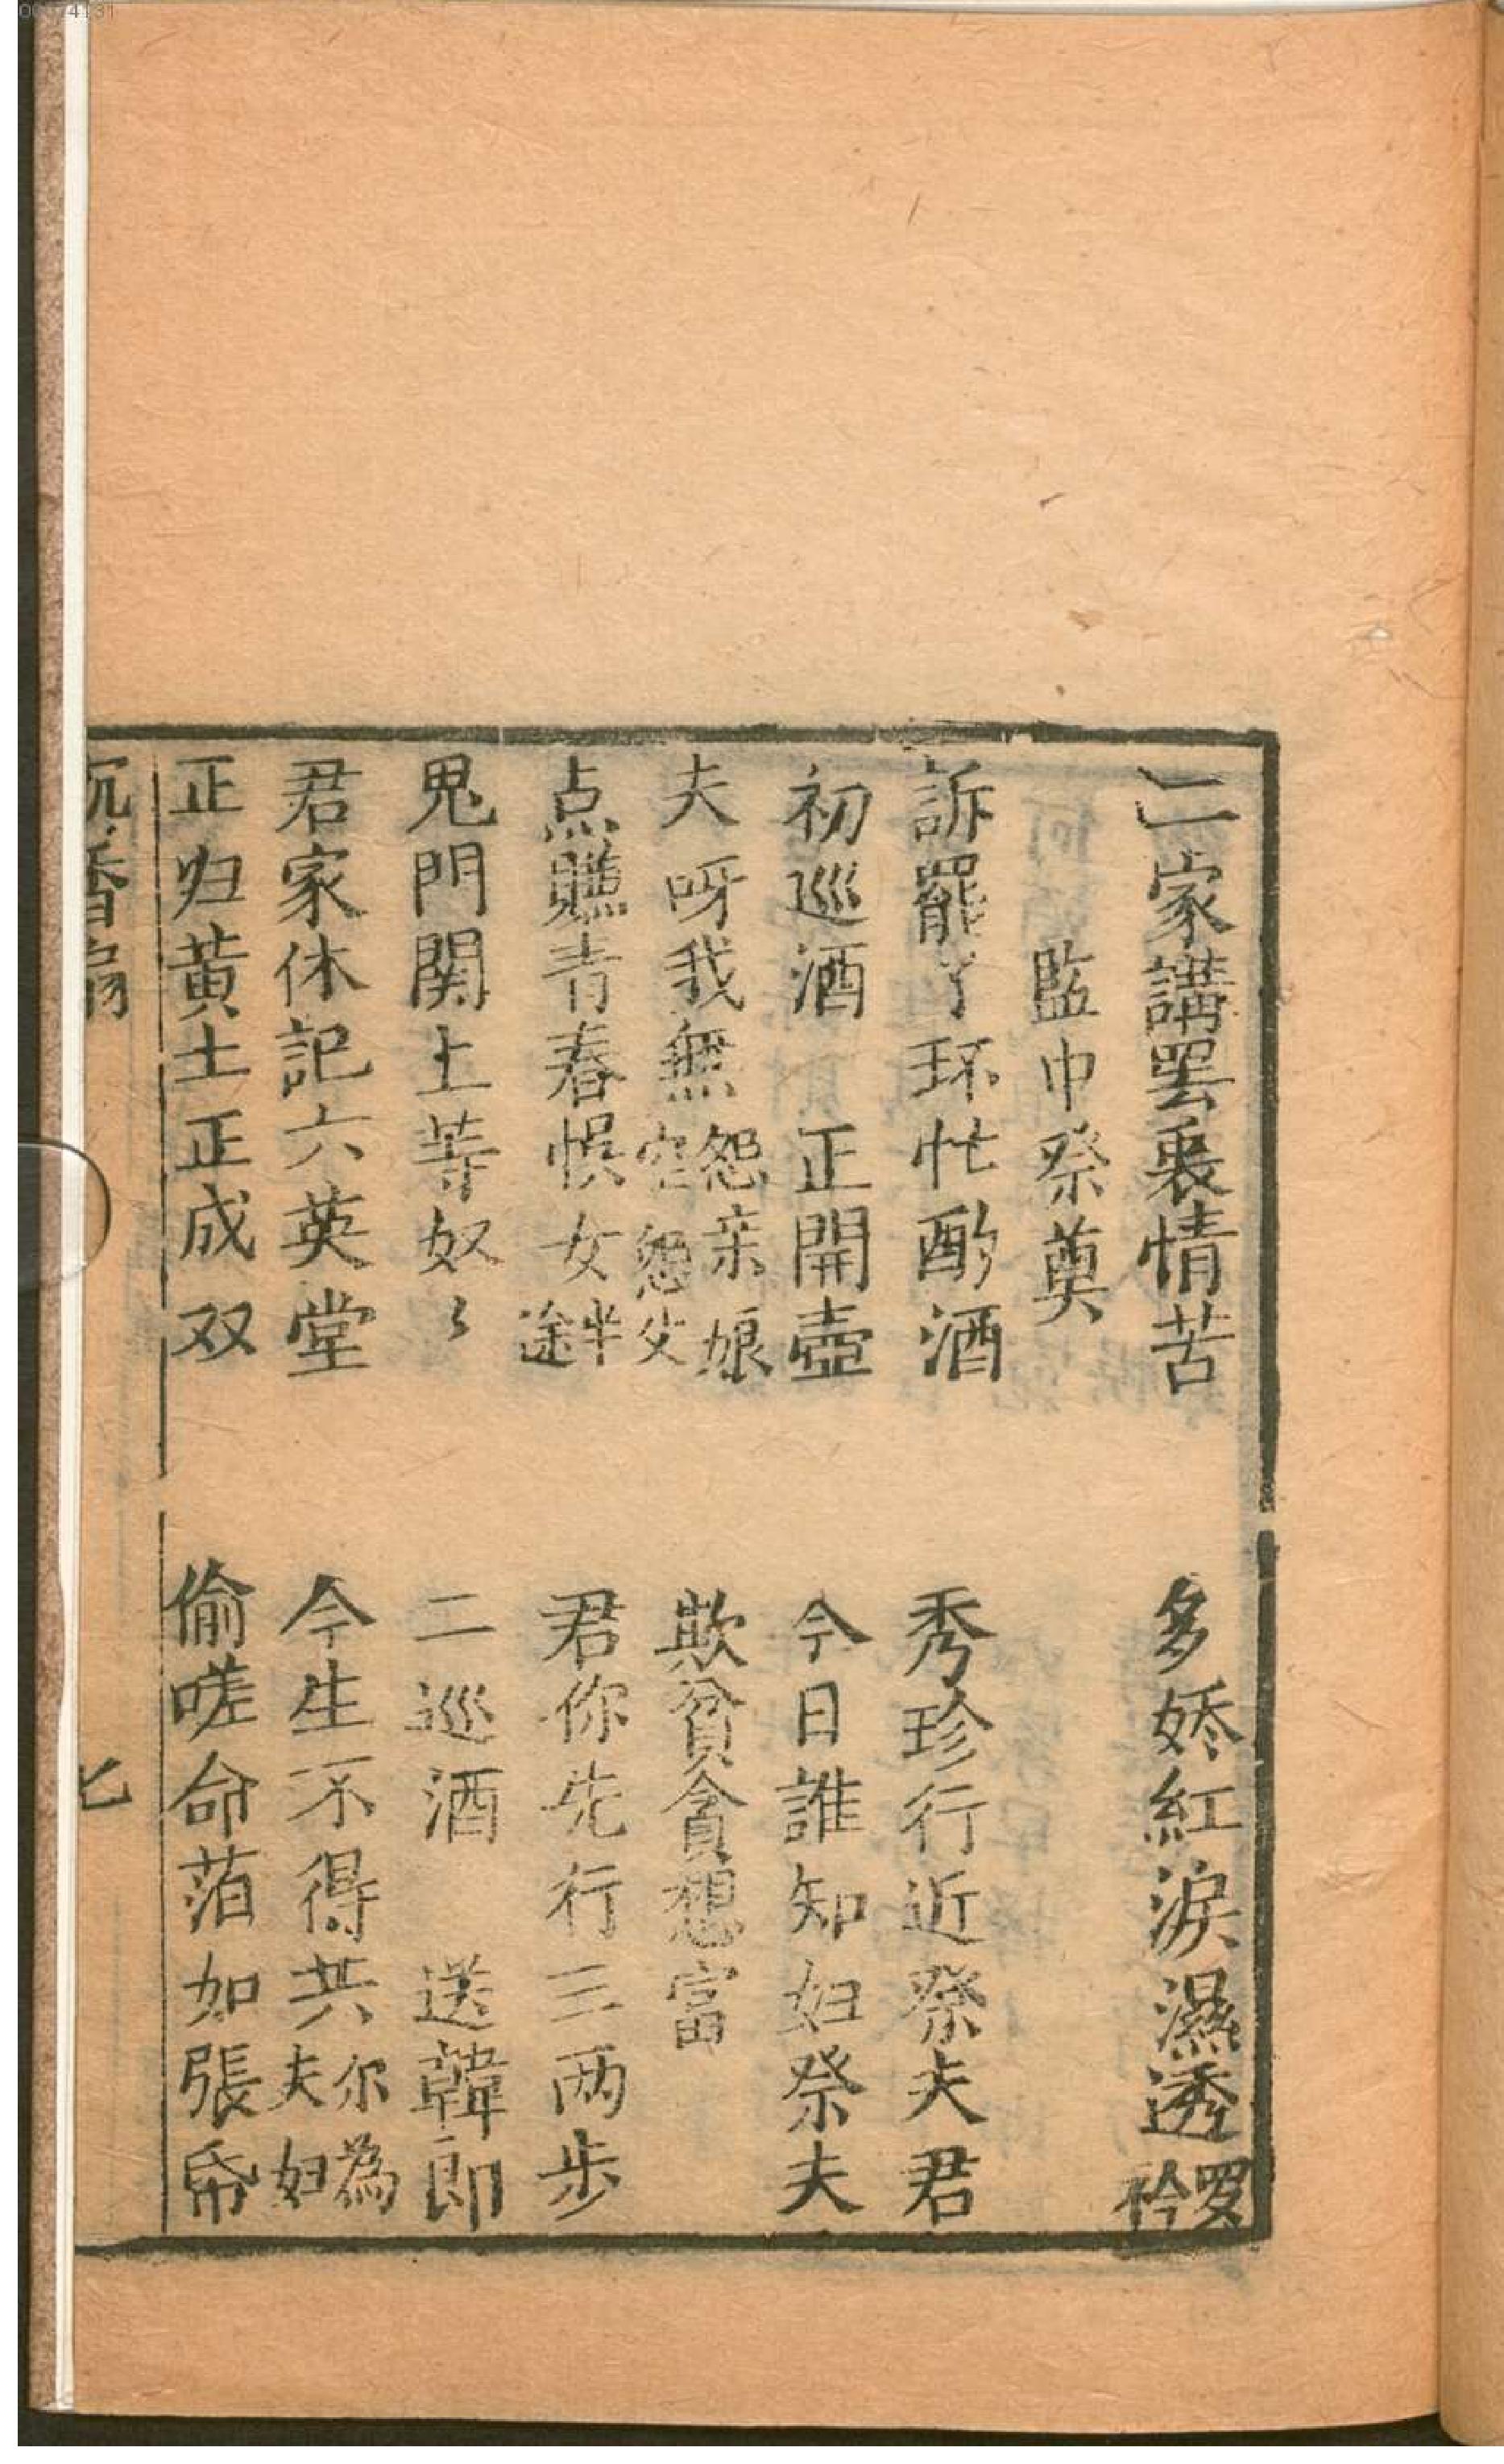 二家講罢衷情苦　多娇紅淚濕透罗衿
監中祭奠
訴罷丫环忙酌酒　秀珍行近祭夫君
初巡酒　正開壺　今日誰知妇祭夫
夫呀我無怨亲娘空怨父　欺貧貪想富
点瞧青春悞女半途　君你先行三两步
鬼門関上等奴〻　二巡酒　送韓郎
君家休記六英堂　今生不得共尔為夫妇
正归黃土正成双　偷嗟命萡如張帋
沉香扇　七